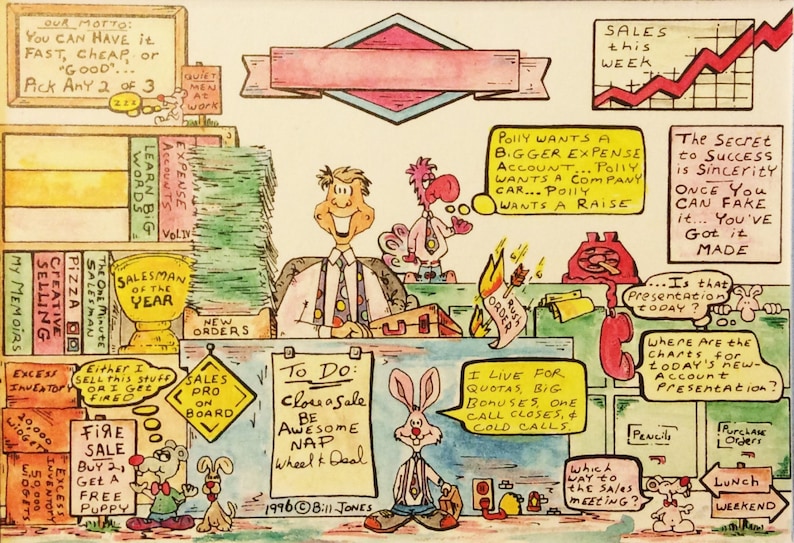 OUR MOTTO:
YOU CAN HAVE it
FAST, CHEAP, or
"GOOD"...
Pick ANY 2 of 3
ZZZ
QUIET
MEN
AT
WORK
SALES
this
WEEK
POLLY WANTS A
BIGGER EXPENSE
ACCOUNT... POLLY
WANTS A COMPANY
CAR... POLLY
WANTS A RAISE
The SECRET
to SUCCESS
is SINCERITY
ONCE YOU
CAN FAKE
it... YOU'VE
GOT it
MADE
LEARN BIG
WORDS
EXPENSE
ACCOUNTS
VOL.IV
MY MEMOIRS
CREATIVE
SELLING
PIZZA
THE ONE MINUTE
SALESMAN
SALESMAN
OF THE
YEAR
NEW
ORDERS
RUSH
ORDER
...IS that
PRESENTATION
TODAY?
WHERE ARE the
CHARTS FOR
tODAY'S NEW-
ACCOUNT
PRESENTATION?
EXCESS
INVENTORY
20,000
WIDGETS
EXCESS
INVENTORY
50,000
WIDGETS
Either I
SELL this STUFF
OR I GET
FIRED!
SALES
PRO
ON
BOARD
FiRE
SALE
BUY 2,
GET A
FREE
PUPPY
To Do:
Close a Sale
BE
AWESOME
NAP
Wheel & Deal
1996 © Bill Jones
I LIVE FOR
QUOTAS, BIG
BONUSES, ONE
CALL CLOSES, &
COLD CALLS.
PENCILS
PURCHASE
ORDERS
WHICH
WAY to
the SALES
MEETING?
LUNCH
WEEKEND